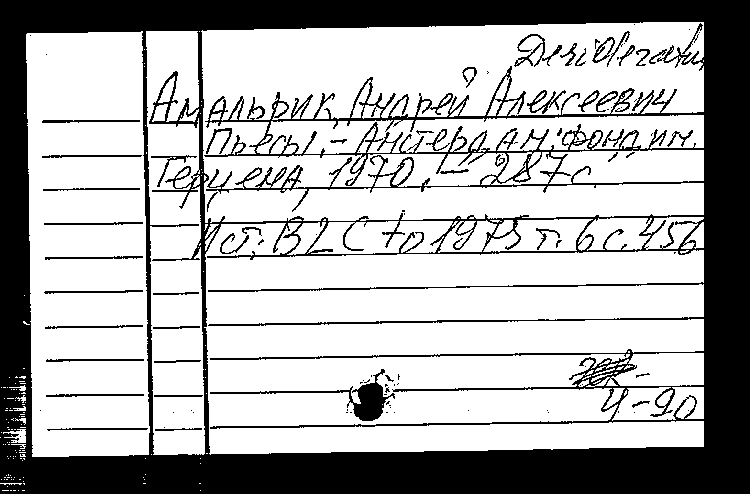 Амальрик, Андрей Алексеевич
Пьесы. - Амстердам: фонд им.
Герцена, 1970. - 287 с.
Ист: BLC to 1975 т. 6 с. 456
4-90